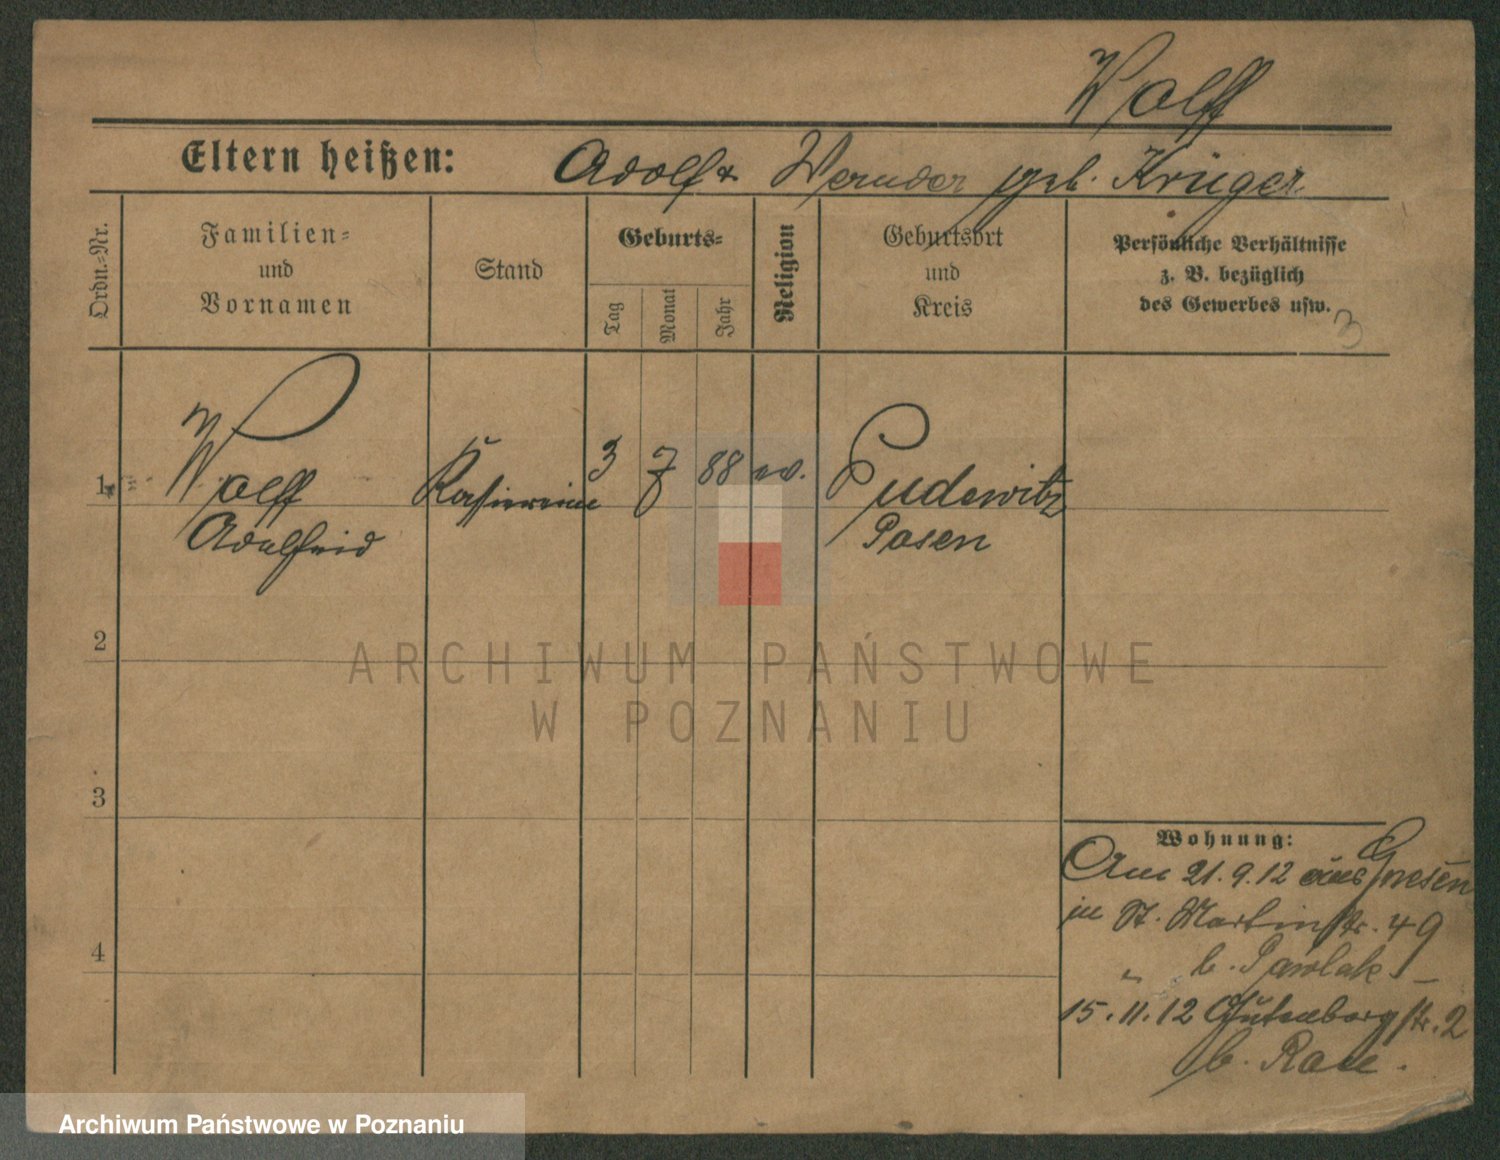 Wolff
Eltern heißen: Adolf u. Wernder geb. Krüger
Ordn.=Nr.
Familien=
und
Vornamen
Stand
Geburts=
Tag
Monat
Jahr
Religion
Geburtsort
und
Kreis
Persönliche Verhältnisse
z. B. bezüglich
des Gewerbes usw.
3
1 Wolff Kassiererin 3 7 88 ev. Pudewitz
Posen
2
3
4
Wohnung:
Am 21.9.12 aus Gnesen
in St. Martinstr. 49
" b. Pawlak
15.11.12 Gutenbergstr. 2
b.
ARCHIWUM PAŃSTWOWE
W POZNANIU
Archiwum Państwowe w Poznaniu